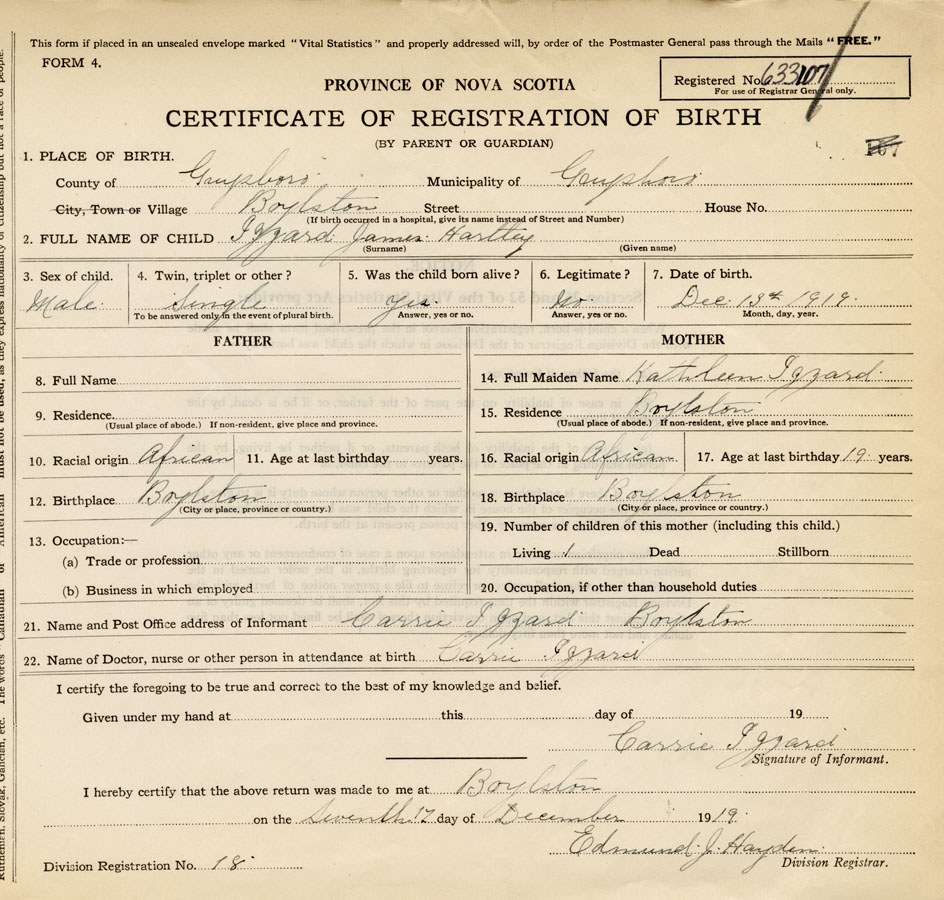 This form if placed in an unsealed envelope marked “Vital Statistics” and properly addressed will, by order of the Postmaster General pass through the Mails “FREE.”
FORM 4.
Registered No. 633107
For use of Registrar General only.
PROVINCE OF NOVA SCOTIA
CERTIFICATE OF REGISTRATION OF BIRTH
(BY PARENT OR GUARDIAN)
107
1. PLACE OF BIRTH.
County of Guysboro Municipality of Guysboro
City, Town or Village Boylston Street House No.
(If birth occurred in a hospital, give its name instead of Street and Number)
2. FULL NAME OF CHILD Izzard James Hartley
(Surname) (Given name)
3. Sex of child. 4. Twin, triplet or other? 5. Was the child born alive? 6. Legitimate? 7. Date of birth.
Male. Single yes. No Dec. 13th 1919.
To be answered only in the event of plural birth. Answer, yes or no. Answer, yes or no. Month, day, year.
FATHER
8. Full Name
9. Residence.
(Usual place of abode.) If non-resident, give place and province.
10. Racial origin African 11. Age at last birthday years.
12. Birthplace Boylston
(City or place, province or country.)
13. Occupation:—
(a) Trade or profession
(b) Business in which employed
MOTHER
14. Full Maiden Name Kathleen Izzard.
15. Residence Boylston
(Usual place of abode.) If non-resident, give place and province.
16. Racial origin African 17. Age at last birthday 19. years.
18. Birthplace Boylston
(City or place, province or country.)
19. Number of children of this mother (including this child.)
Living 1 Dead Stillborn
20. Occupation, if other than household duties
21. Name and Post Office address of Informant Carrie Izzard Boylston
22. Name of Doctor, nurse or other person in attendance at birth Carrie Izzard
I certify the foregoing to be true and correct to the best of my knowledge and belief.
Given under my hand at this day of 19
Carrie Izzard
Signature of Informant.
I hereby certify that the above return was made to me at Boylston
on the seventh 17 day of December 1919.
Edmund J. Hayden.
Division Registrar.
Division Registration No. 18.